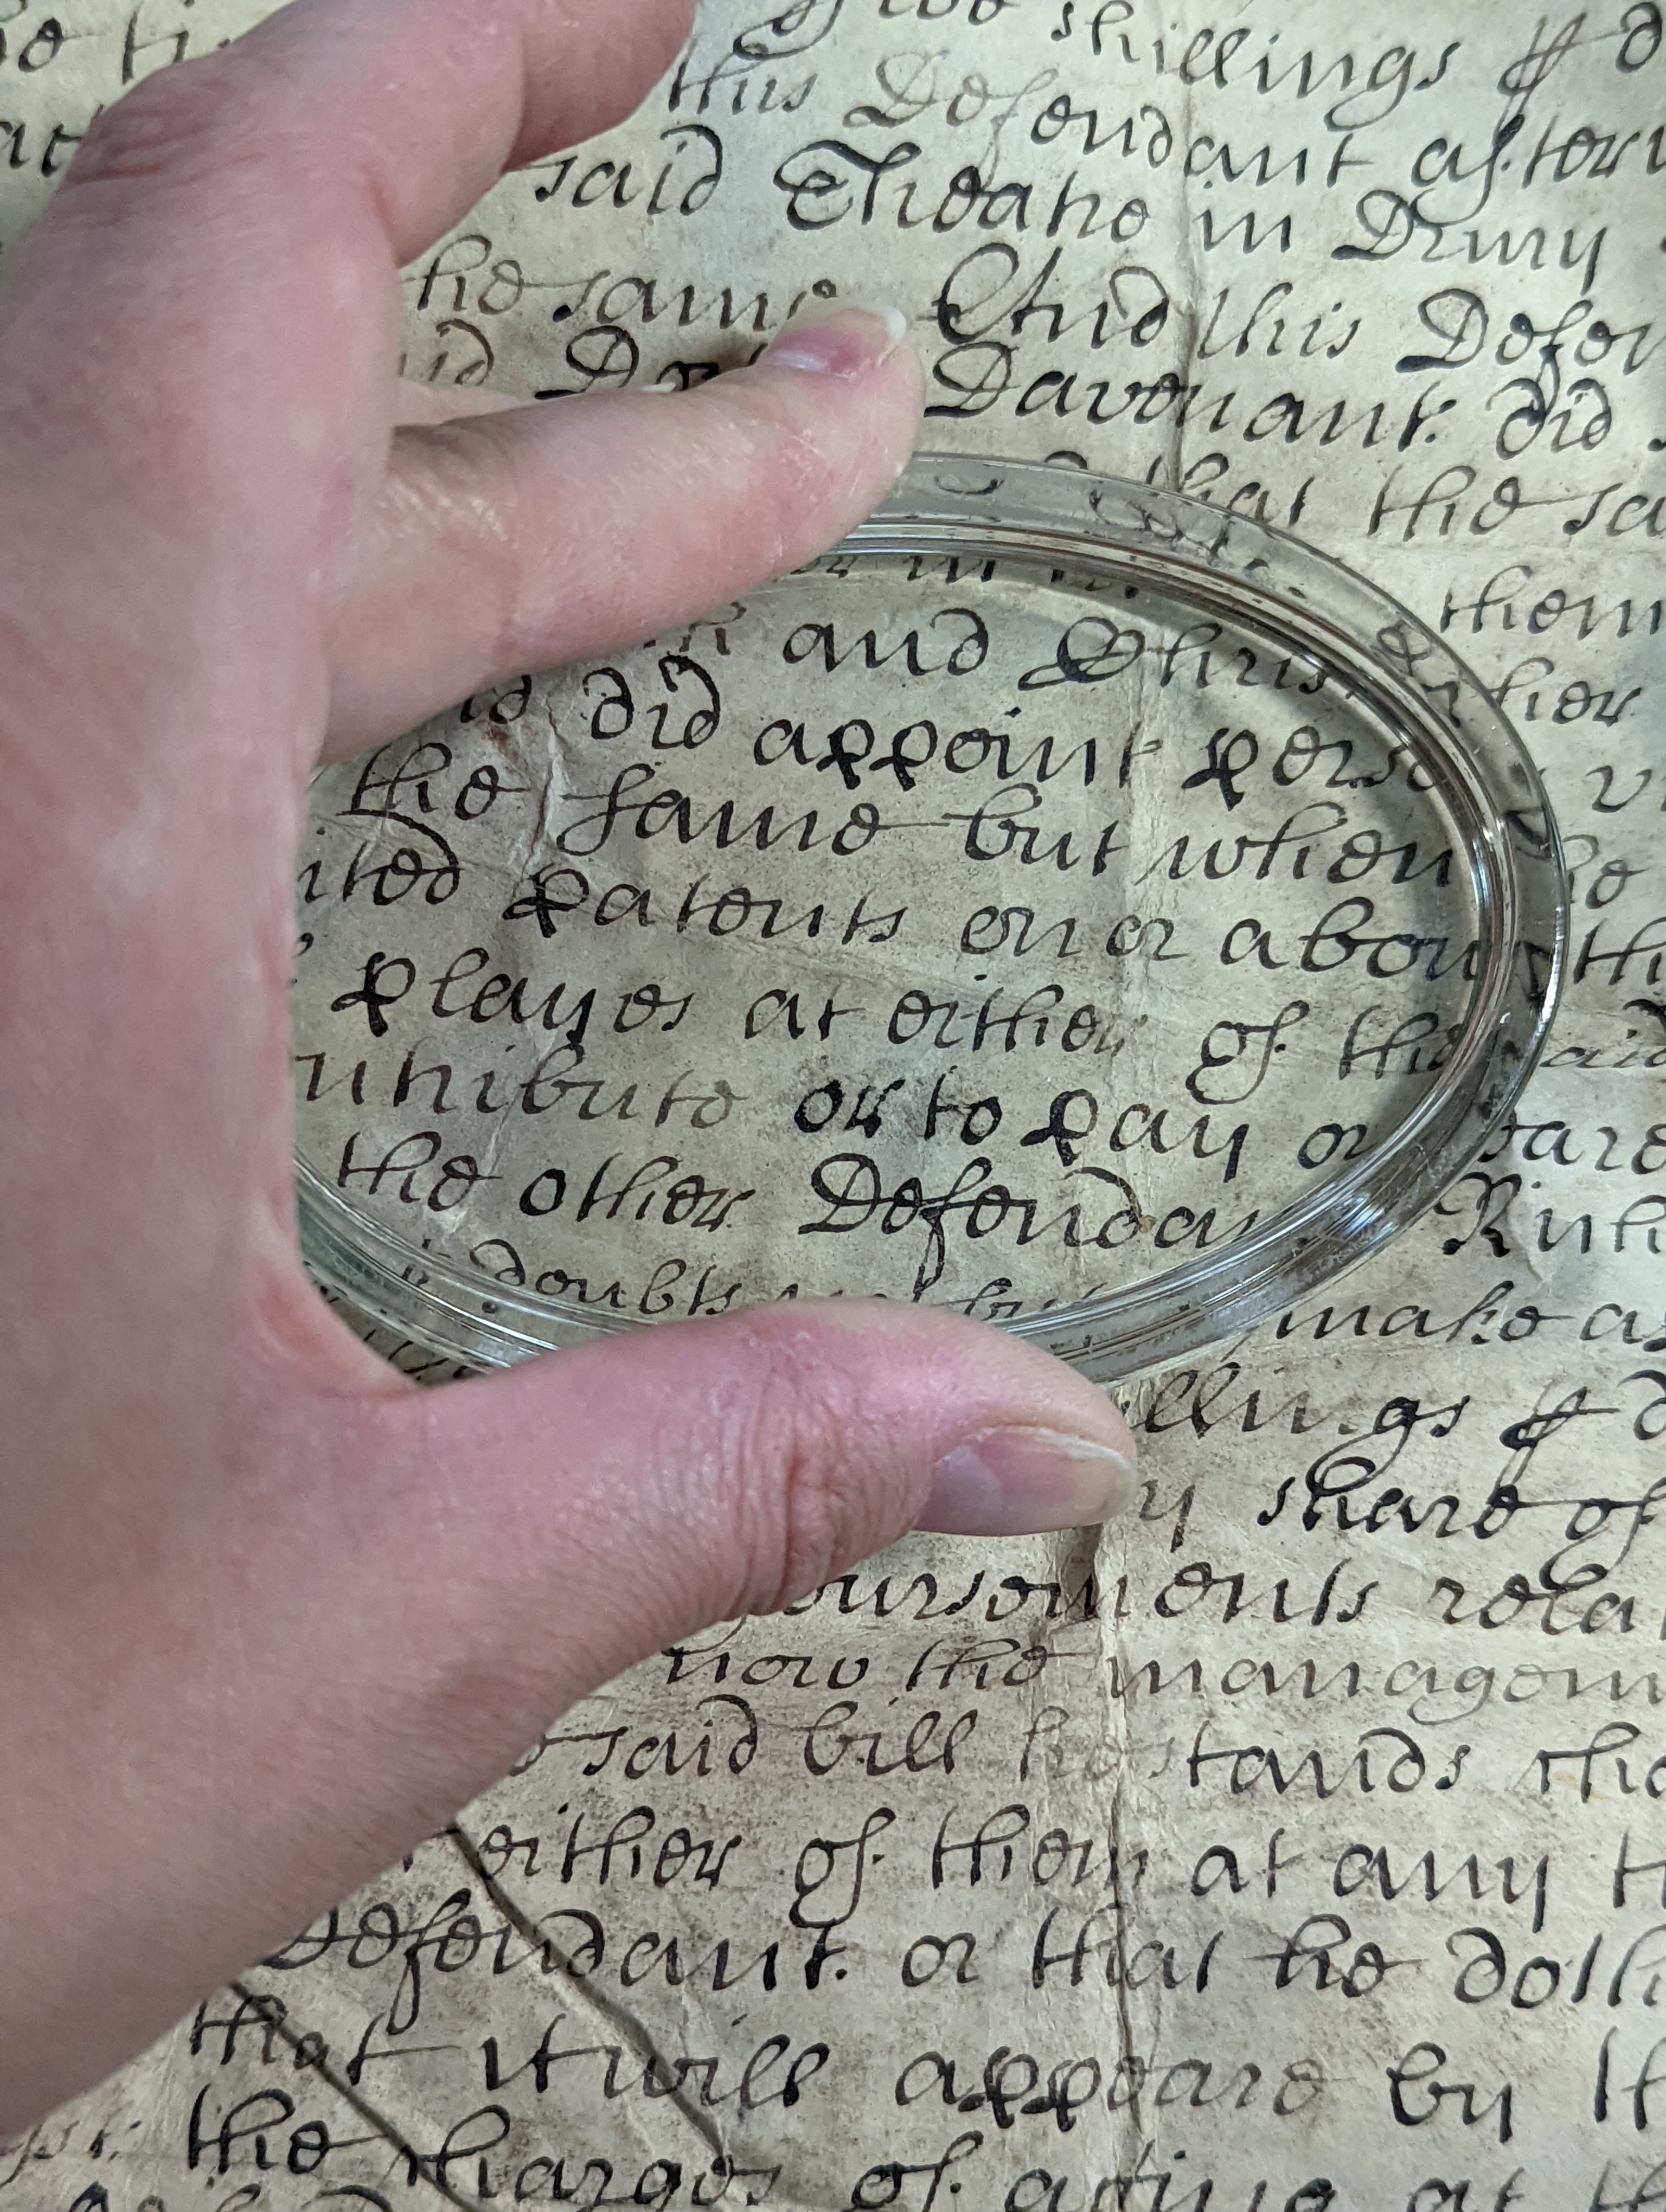 two shillings p d
this Defendant after
said Theatre in Drury
the same And this Defen
Davenant did
that the sa
them
and Chris either
did appoint perso
the same but when
ited patents on or abou the
playes at either of the said
ntribute or to pay or
the other Defendan Rich
doubts not but make a
llings p d
y share of
bursements rela
now the managem
said bill stands cha
either of them at any t
Defendant or that he doth
that it will appeare by th
the charges of acting at th